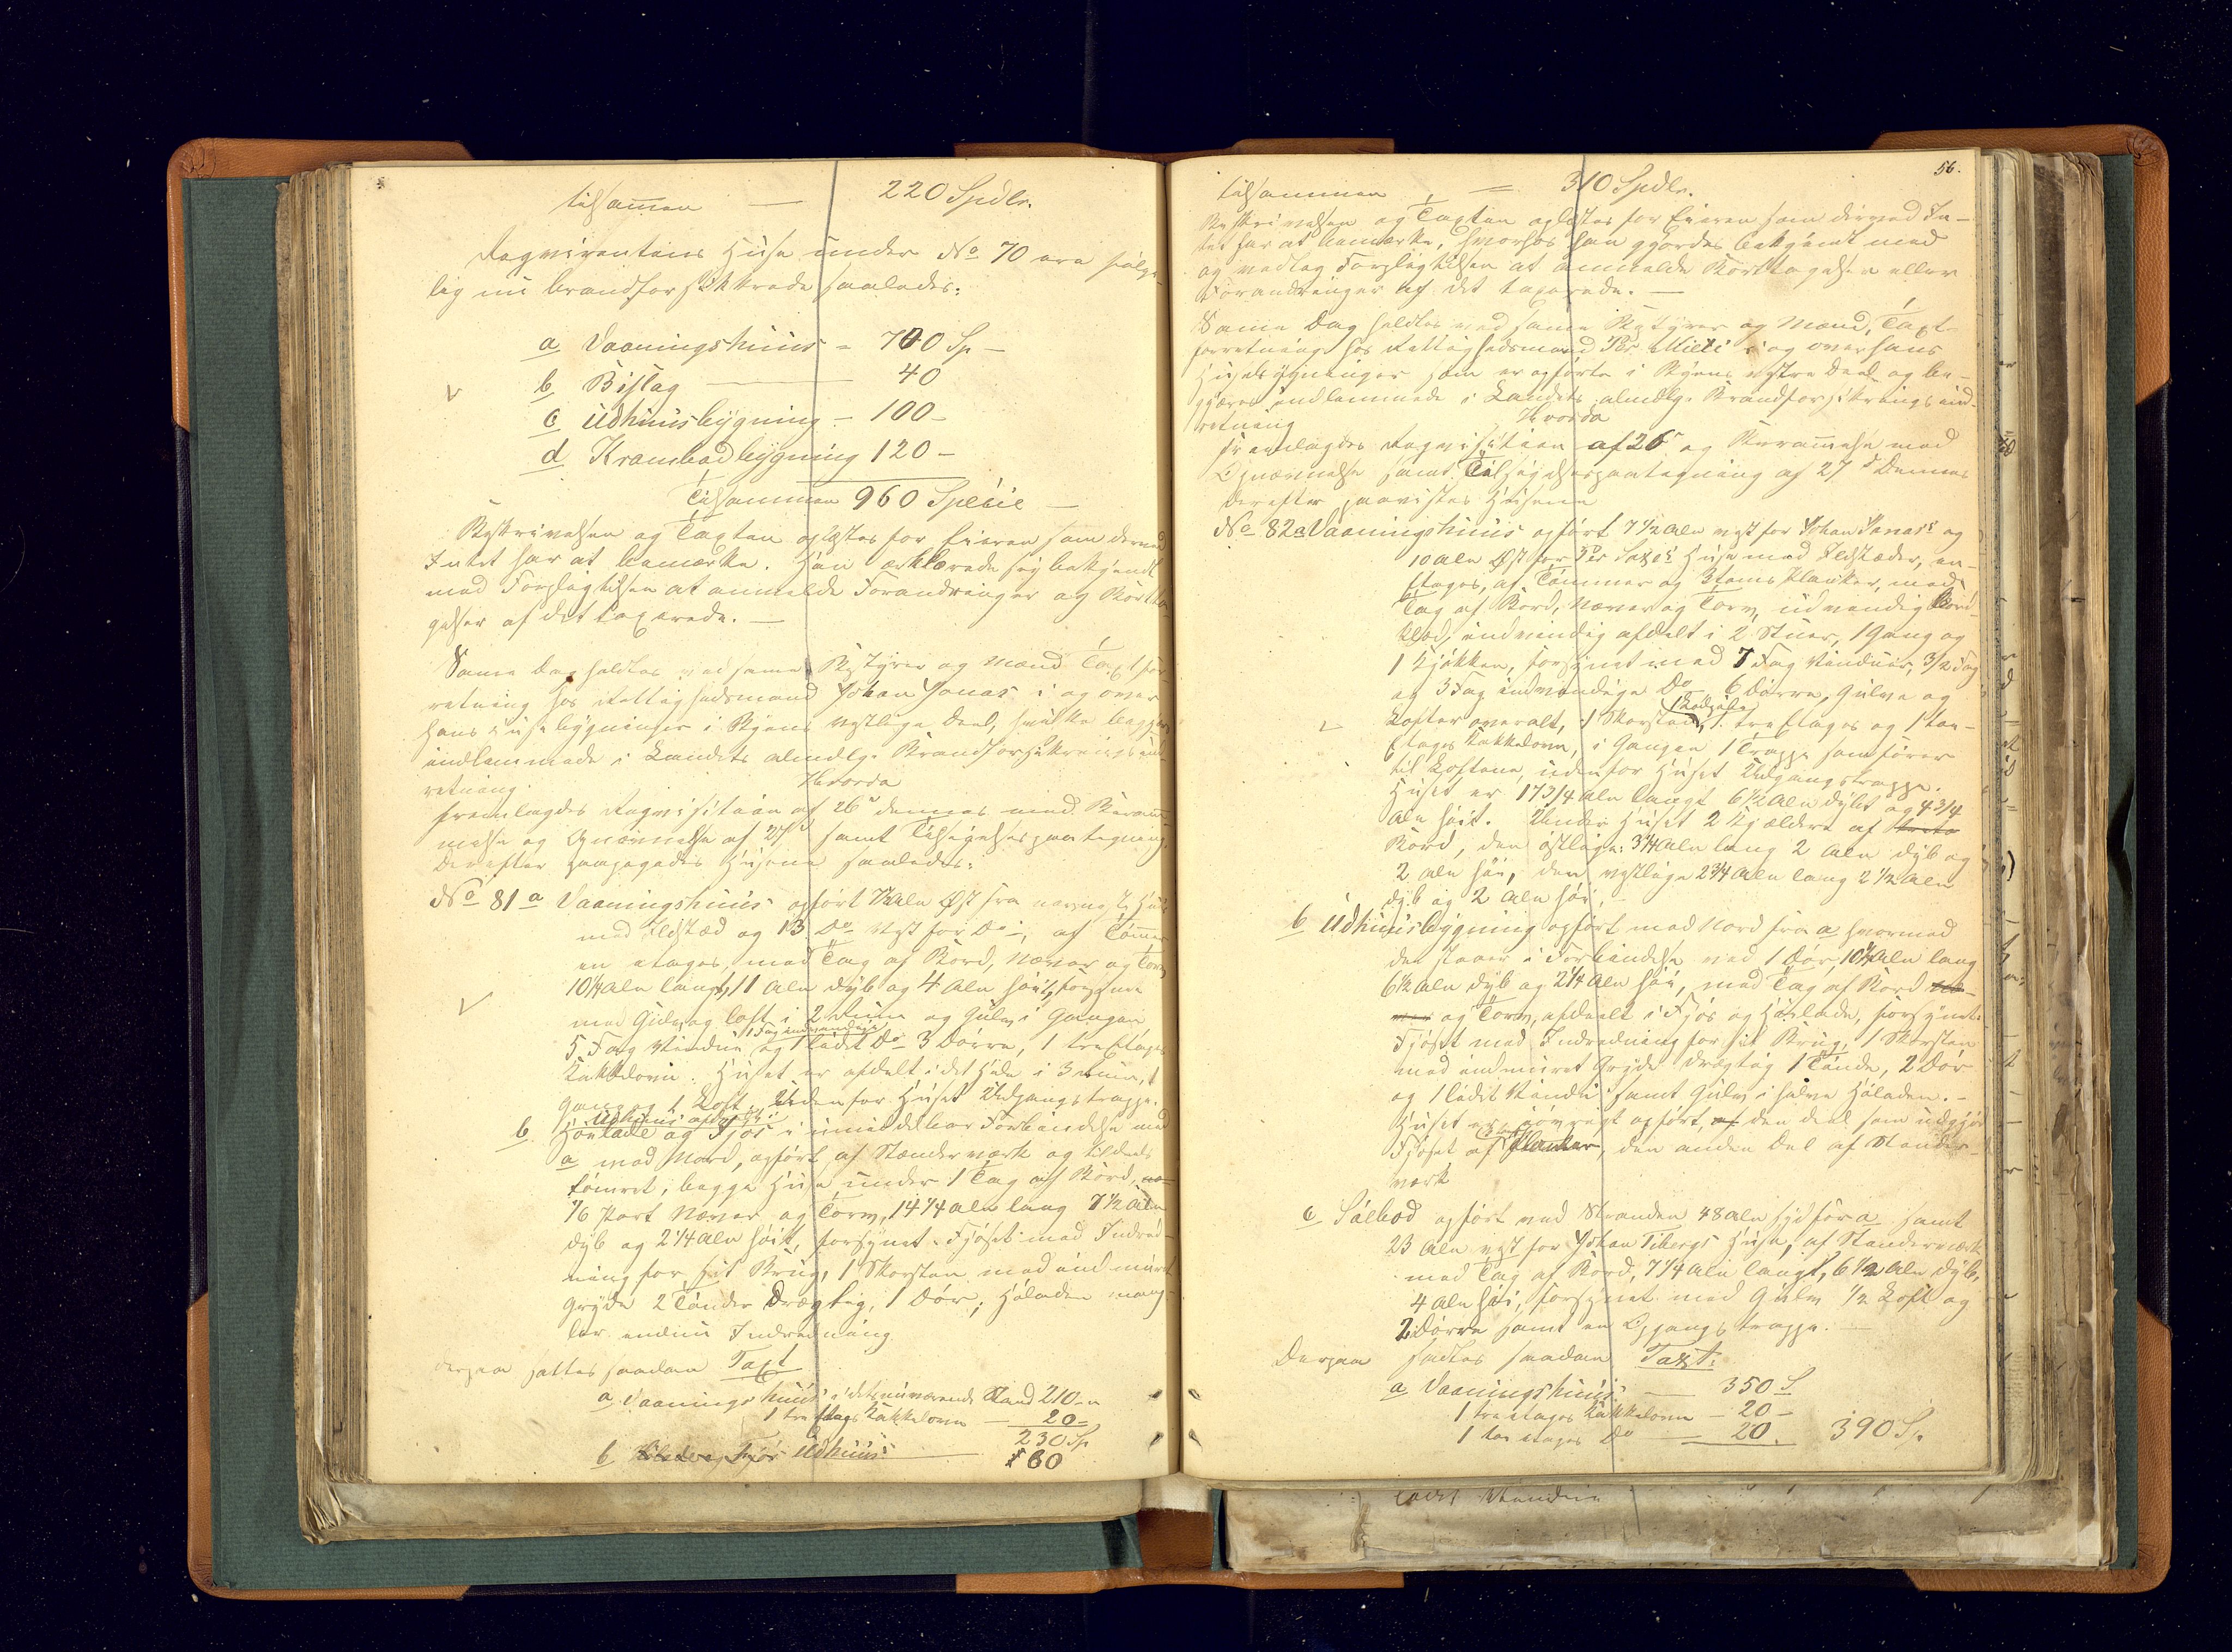 tilsammen — 220 Spdlr.
Reqvirentens Huse under No 70 ere følge-
lig nu brandforsikkrede saaledes:
a Vaaningshuus = 700 Sp —
b Bislag — 40
c Udhuusbygning — 100 —
d Krambodbygning 120 —
Tilsammen 960 Specie —
Beskrivelsen og Taxten oplæstes for Eieren som derved
Intet har at bemærke. Han erklærede sig bekjendt
med Forpligtelsen at anmelde Forandringer og Borttta-
gelser af det taxerede. —
Samme Dag holdtes ved samme Bestyrer og Mænd Taxtfor-
retning hos Rettighedsmand Johan Jonas i og over
hans Huusbygninger i Byens vestlige Deel, hvilke begges
indlemmede i Landets almdlg. Brandforsikringsind-
retning.
Hvorda
fremlagdes Reqvisition af 26de dennes med Beram-
melse og Opnævnelse af 27de samt Tilsigelsespaategning.
Derefter paapegedes Husene saaledes:
No 81 a Vaaningshuus opført 7½ Aln Øst fra nærmeste Huus
med Ildsted og 13 Do Vest for Do, af Tømmer
en etages, med Tag af Bord, Næver og Torv
10¼ Aln langt, 11 Aln dyb og 4 Aln høit, forsynet
med Gulv og Loft i 2 Rum og Gulv i Gangen
1 Fag indvendige
5 Fag Vinduer og 1 lidet Do 3 Dørre, 1 tre Etages
Kakkelovn. Huset er afdelt i det Hele i 3 Rum, 1
Gang og 1 Loft. Udenfor Huset Udgangstrappe.
Udhuus afdelt i
b Hølade og Fjøs i umiddelbar Forbindelse med
a mod Nord, opført af Stænderværk og tildeels
tømret, begge Huse under 1 Tag af Bord,
1/6 Part Næver og Torv, 14¼ Aln lang 7½ Aln
dyb og 2¼ Aln høit, forsynet Fjøset med Indred-
ning for sit Brug, 1 Skorsten med indmuret
Gryde 2 Tønder Drægtig, 1 Dør; Høladen mang-
ler endnu Indredning.
Derpaa sattes saadan Taxt
a Vaaningshuus i det nuværende Stand 210 —
1 tre Etages Kakkelovn — 20 —
230 Sp
b Hølade og Fjøs Udhuus — 80
56.
tilsammen — 310 Spdlr.
Beskrivelsen og Taxten oplæstes for Eieren som derved In-
tet har at bemærke, hvorhos han gjordes bekjendt med
og vedtog Forpligtelsen at anmelde Borttagelser eller
Forandringer af det taxerede. —
Samme Dag holdtes ved samme Bestyrer og Mænd, Taxt-
forretning hos Rettighedsmand Per Mieti i og over hans
Huusbygninger som er opførte i Byens vestre Deel og be-
gjæres indlemmede i Landets almdlg. Brandforsikringsind-
retning
Hvorda
fremlagdes Reqvisition af 26de og Berammelse med
Opnævnelse samt Tilsigelsespaategning af 27de Dennes
Derefter paavistes Husene
No 82 a Vaaningshuus opført 7½ Aln vest for Johan Jonas's og
10 Aln Øst for Per Huse med Ildsteder, en-
Etages, af Tømmer og 3toms Planker, med
Tag af Bord, Næver og Torv, udvendig Bord-
klæd, indvendig afdelt i 2 Stuer, 1 Gang og
1 Kjøkken, forsynet med 7 Fag Vinduer, 3/2 Fag
og 3 Fag indvendige Do 6 Dørre, Gulve og
Lofter overalt, 1 Skorsten, 1 tre Etages og 1 to-
Etages Kakkelovn, i Gangen 1 Trappe som fører
til Loftene, udenfor Huset Udgangstrappe.
Huset er 17¾ Aln langt 6½ Aln dybt og 4¾
Aln høit. Under Huset 2 Kjældere af
Bord, den østlige: 3¼ Aln lang 2 Aln dyb og
2 Aln høi, den vestlige 2¾ Aln lang 2½ Aln
dyb og 2 Aln høi.
b Udhuusbygning opført mod Nord fra a hvormed
den staaer i Forbindelse ved 1 Dør, 10¼ Aln lang
6½ Aln dyb og 2¼ Aln høi, med Tag af Bord
og Torv, afdeelt i Fjøs og Hølade, forsynet
Fjøset med Indredning for sit Brug, 1 Skorsten
med indmuret Gryde drægtig 1 Tønde, 2 Dør
og 1 lidet Vindu samt Gulv i halve Høladen. —
Huset er iøvrigt opført, af den deel som udgjør
Fjøset af Planker, den anden Del af Stender-
værk
c Søebod opført ved Stranden 48 Aln syd for a samt
23 Aln vest for Johan Tibergs Huse, af Stenderværk
med Tag af Bord, 7¼ Aln langt, 6½ Aln dyb,
4 Aln høi, forsynet med Gulv ½ Loft og
2 Dørre samt en Opgangstrappe.
Derpaa sattes saadan Taxt:
a Vaaningshuus — 350 S
1 treetages Kakkelovn — 20 —
1 to etages Do — 20. 390 Sp.
lidet Vindue